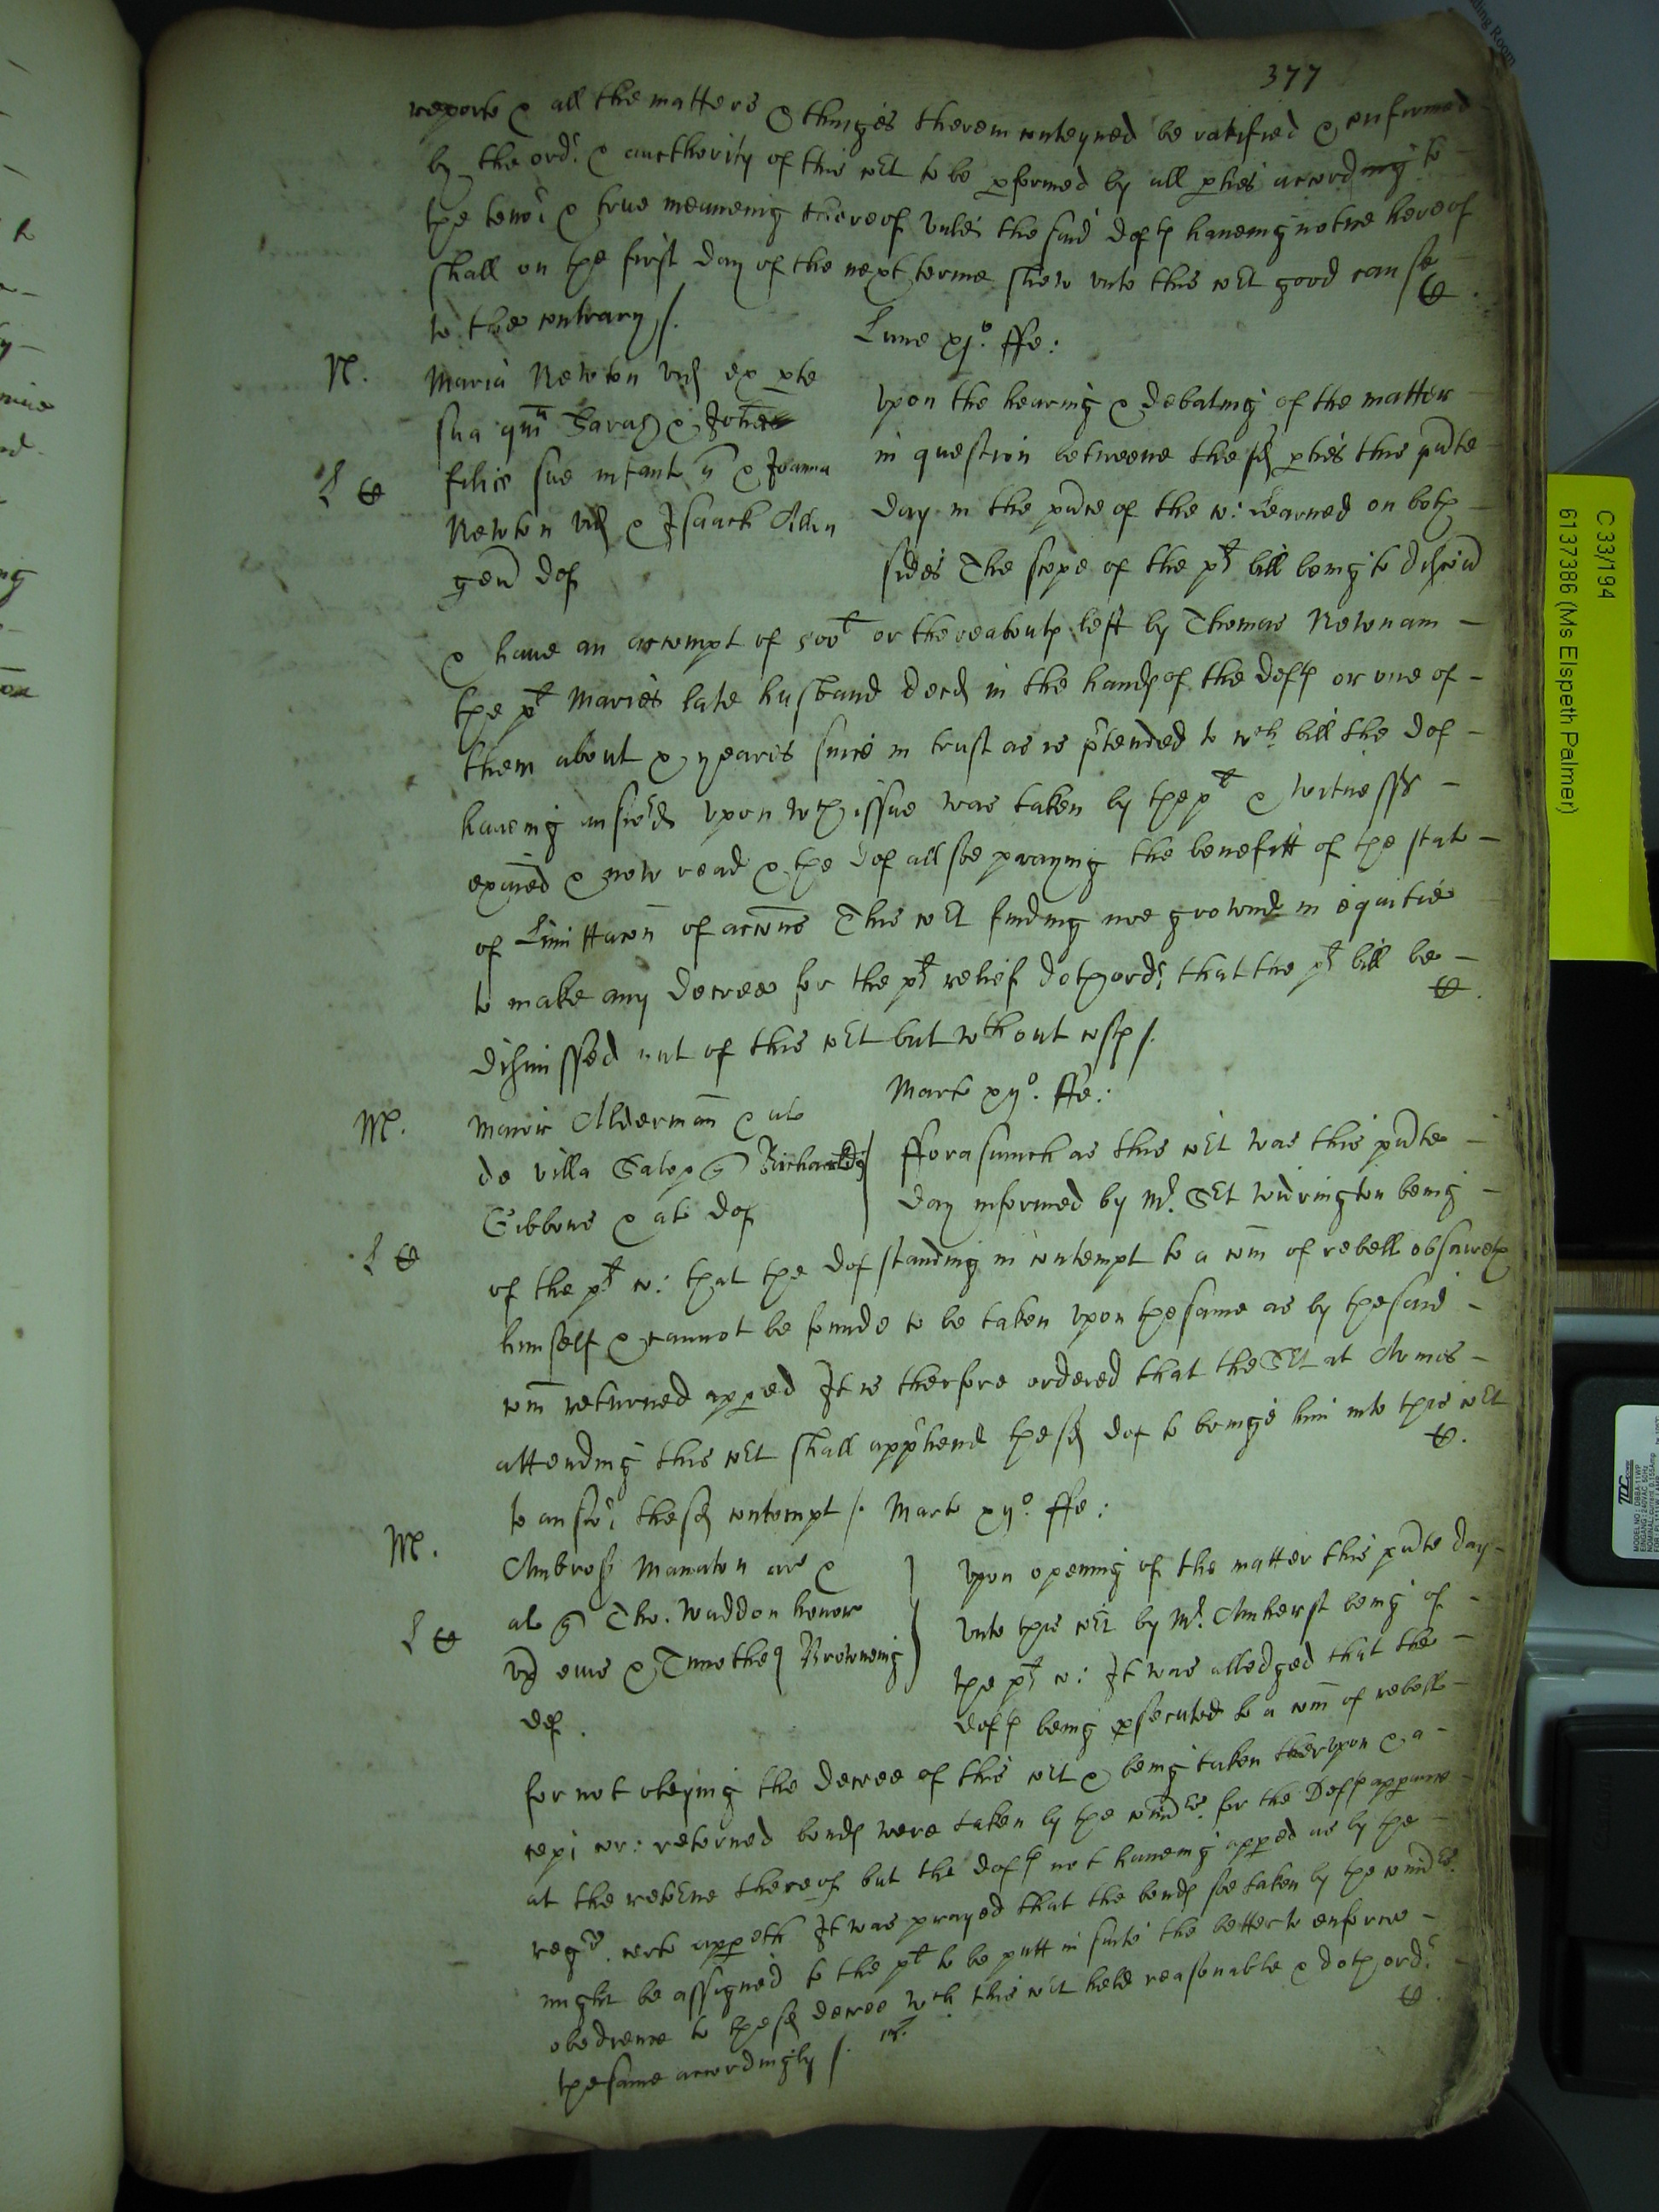 377
reporte & all the matters & thinges therein conteyned be ratified & confirmed
by the ordr & aucthority of this Cort to be pformed by all pties according to
the tenor & true meaneing thereof unles the said Deftes haveing notice hereof
shall on the first day of the next terme shew unto this Cort good cause
to the contrary /.
Lune xjo. ffe:
N.
Maria Newton vid ex pte
sua quer Sara &
filie sue infant & Joanna
Newton vid & Isaack Allen
gen Def
Upon the hearing & debating of the matter
in question betweene the sd pties this pnte
day in the pnce of the co: Learned on both
sides The scope of the plt bill being to discov
& have an accompt of 500l or thereaboutes left by Thomas Newnam
the plt Maries late husband decd in the handes of the Deftes or one of
them about xij yeares since in trust as is ptended to wch bill the Def
haveing answerd upon wch issue was taken by the plt & witnesses
exaied & now read & the Def allsoe praying the benefitt of the stat
of Limittacon of accons This Cort finding noe grownd in equitie
to make any decree for the plt relief doth ordr that the plt bill be
dismissed out of this Cort but wthout costes /.
Marte xijo. ffe:
M.
Maior Alderman & ali
de villa Salop Richard
Gibbons & ali Def
fforasmuch as this Cort was this pnte
day informed by Mr. Sert Widrington being
of the plt co: that the Def standing in contempt to a com of rebell obscureth
himself & cannot be founde to be taken upon the same as by the said
com returned appeed It is therfore ordered that the Sert at Armes
attending this Cort shall apphend the sd Def to bringe him into this Cort
to answr the sd contempt /. Marte xijo. ffe:
M.
Ambros Manaton ar &
al Tho. Waddon
ux eius & Timothey Browneing
def.
Upon opening of the matter this pnte day
unto this Cort by Mr. Amherst being of
the plt co: It was alledged that the
Deftes being psecuted to a com of rebell
for not obeying the decree of this Cort & being taken therupon & a
cepi cor: retorned bondes were taken by the comrs. for the Deftes appance
at the retorne thereof but the deftes not haveing apped as by the
regrs. certe appeth It was prayed that the bondes soe taken by the comrs.
might be assigned to the plt to be putt in suite the better to enforce
obedience to the sd decree wch this Cort held reasonable & doth ordr
the same accordingly /.
C 33/194
6137386 (Ms Elspeth Palmer)